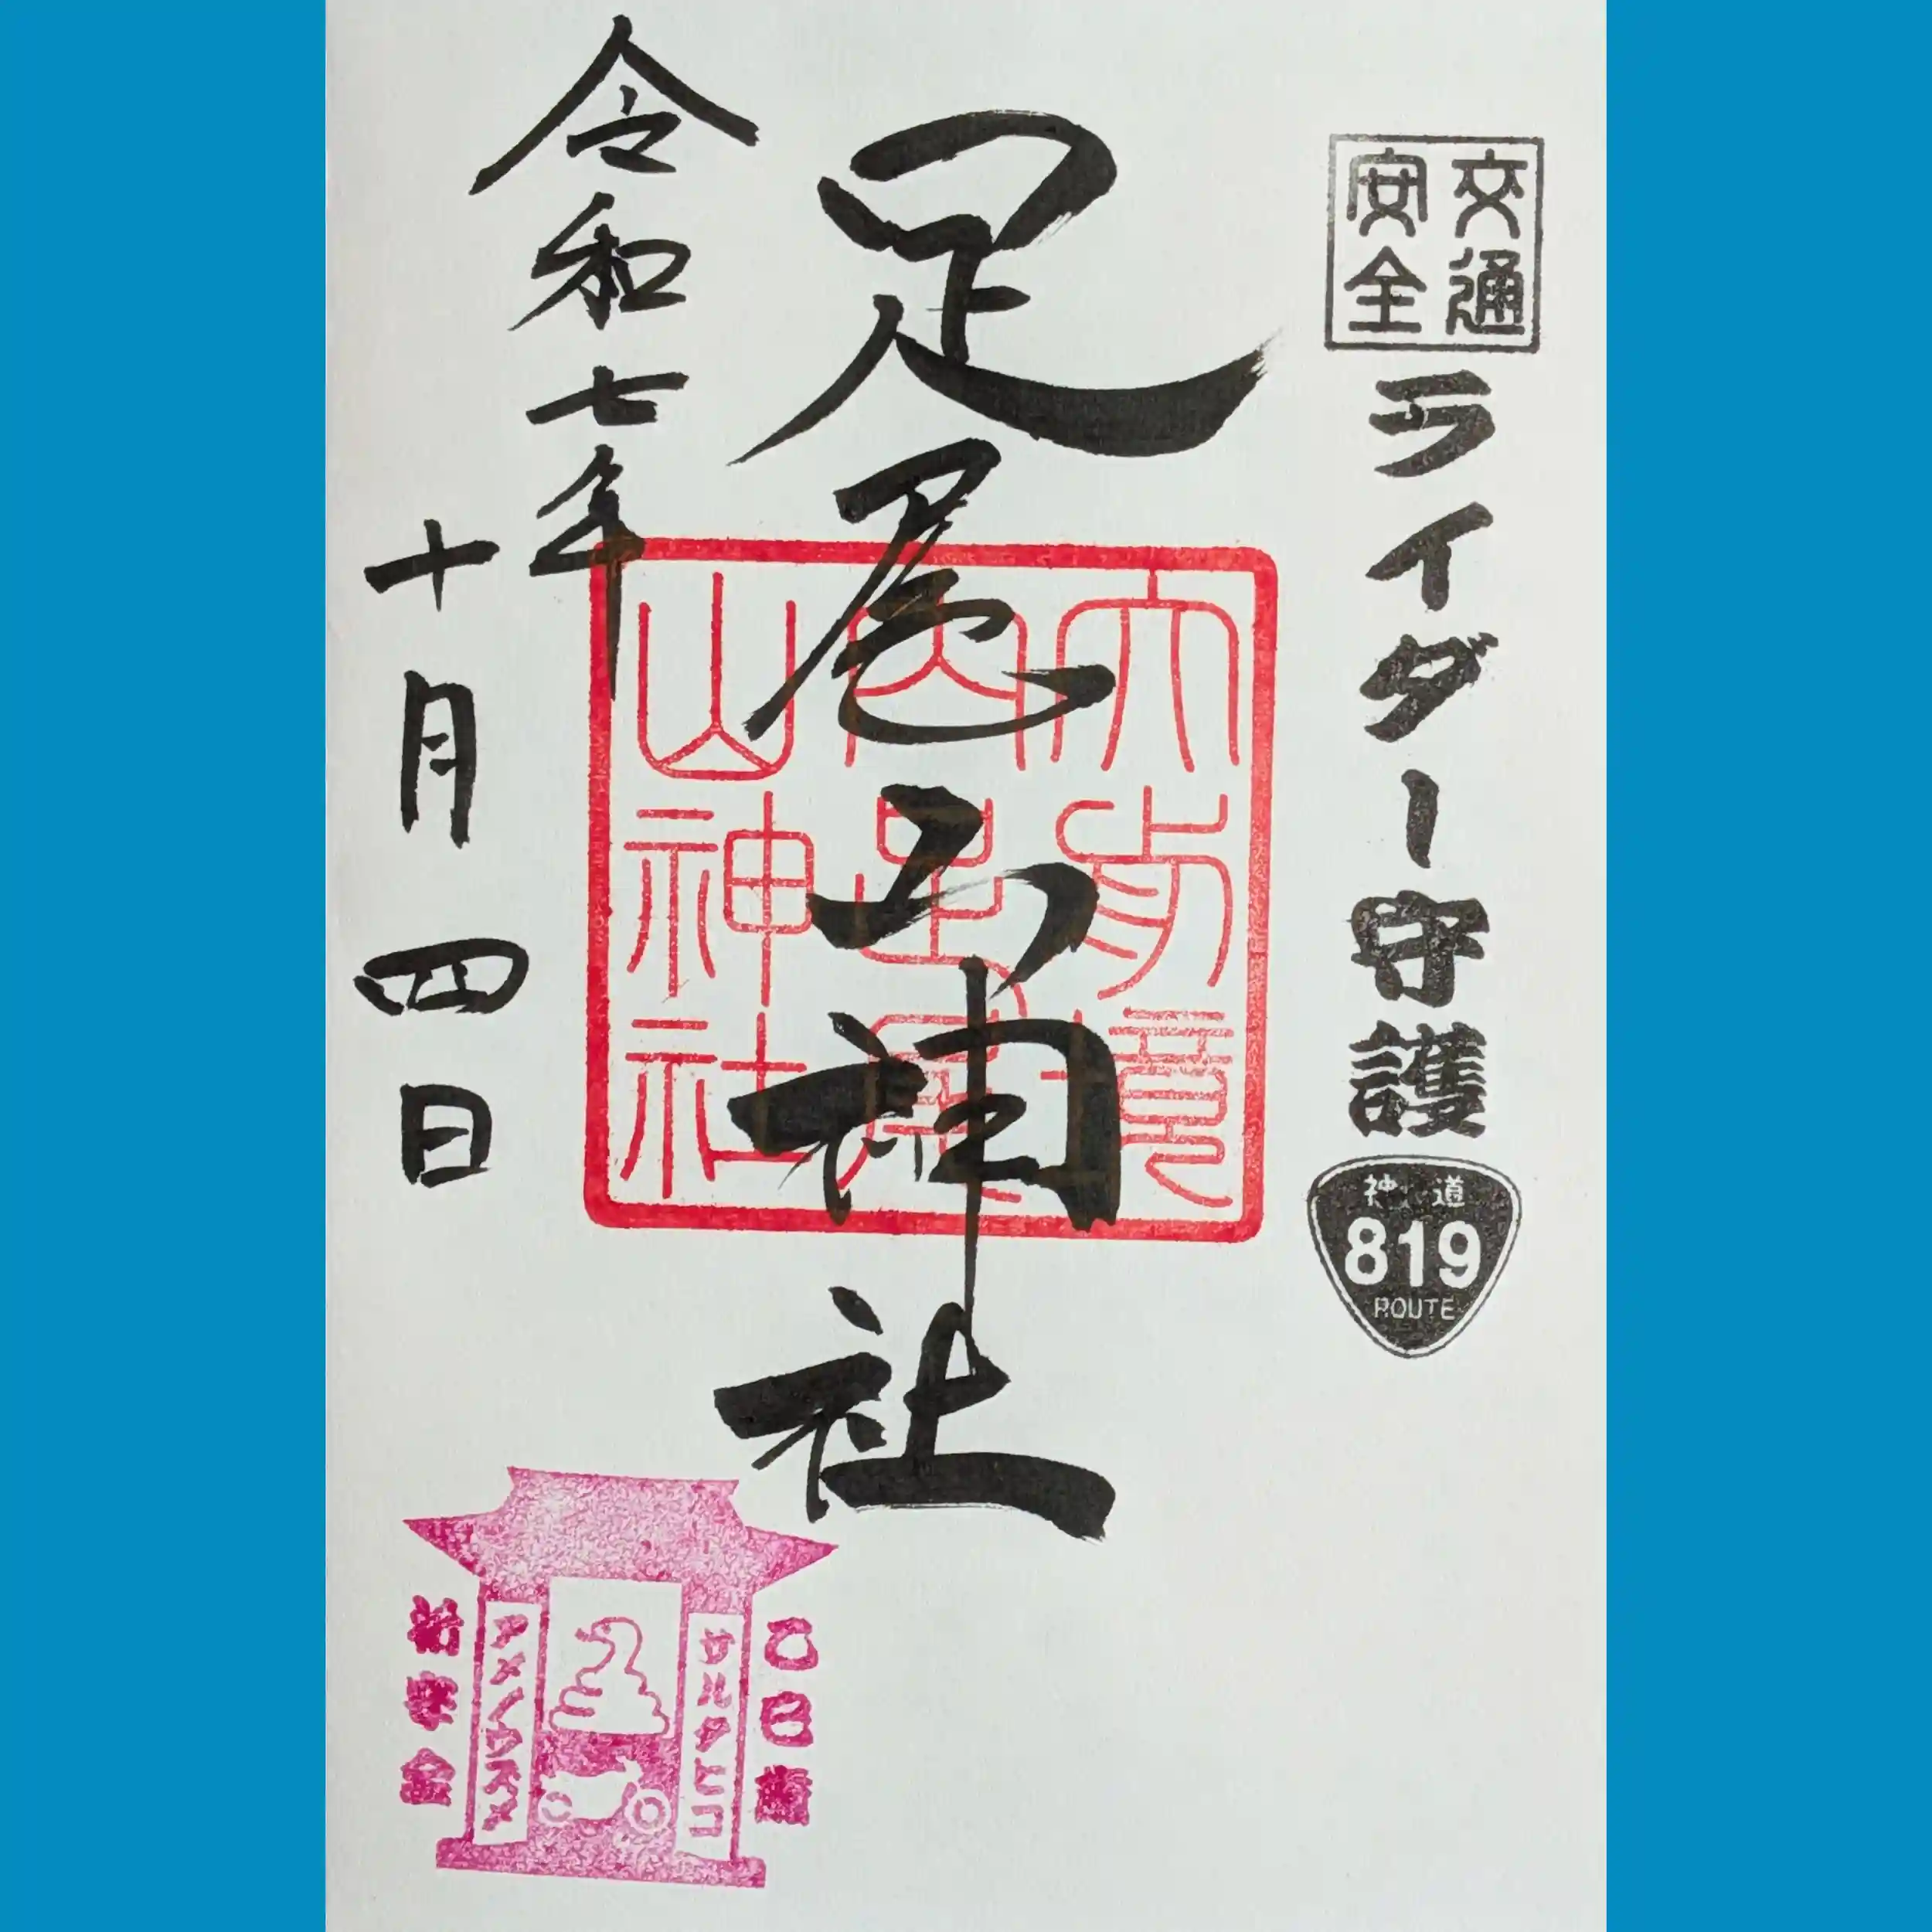 交通
安全
ライダー守護
神道
819
ROUTE
足尾山神社
大前境
内足尾
山神社
令和七年
十月四日
乙巳歳
サルタヒコ
アメノウズメ